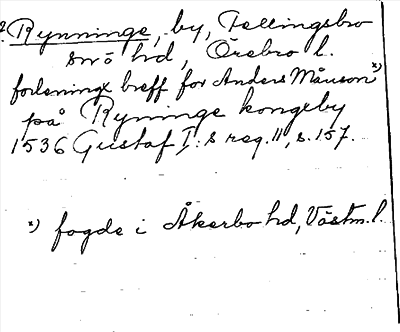 Rynninge, by, Fellingsbro
snö hd, Örebro l.
forleningx breff for Anders Månson x)
på Ryninge kongeby
1536 Gustaf I:s reg. 11, s. 157.
x) fogde i Åkerbo hd, Västm. l.